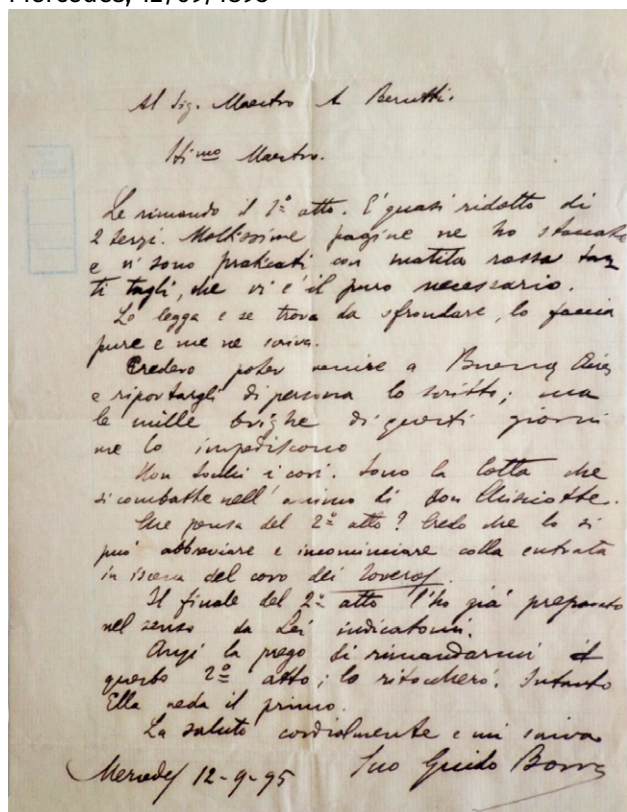 Mercedes, 12/09/1895
Al Sig. Maestro A Berutti.
Ill.mo Maestro.
Le rimando il 1º atto. E' quasi ridotto di
2 terzi. Moltissime pagine ne ho staccate
e vi sono praticati con matita rossa tan
ti tagli, che vi è il puro necessario.
Lo legga e se trova da sfrondare, lo faccia
pure e me ne scriva.
Credevo poter venire a Buenos Aires
e riportargli di persona lo scritto; ma
le mille brighe di questi giorni
me lo impediscono
Non tocchi i cori. Sono la lotta che
si combatte nell'animo di Don Chisciotte.
Che pensa del 2º atto? Credo che lo si
può abbreviare e incominciare colla entrata
in iscena del coro dei
Il finale del 2º atto l'ho già preparato
nel senso da Lei indicatomi.
Anzi la prego di rimandarmi
questo 2º atto; lo ritoccherò. Intanto
Ella veda il primo.
La saluto cordialmente e mi scriva
Suo Guido Borra
Mercedes 12-9-95